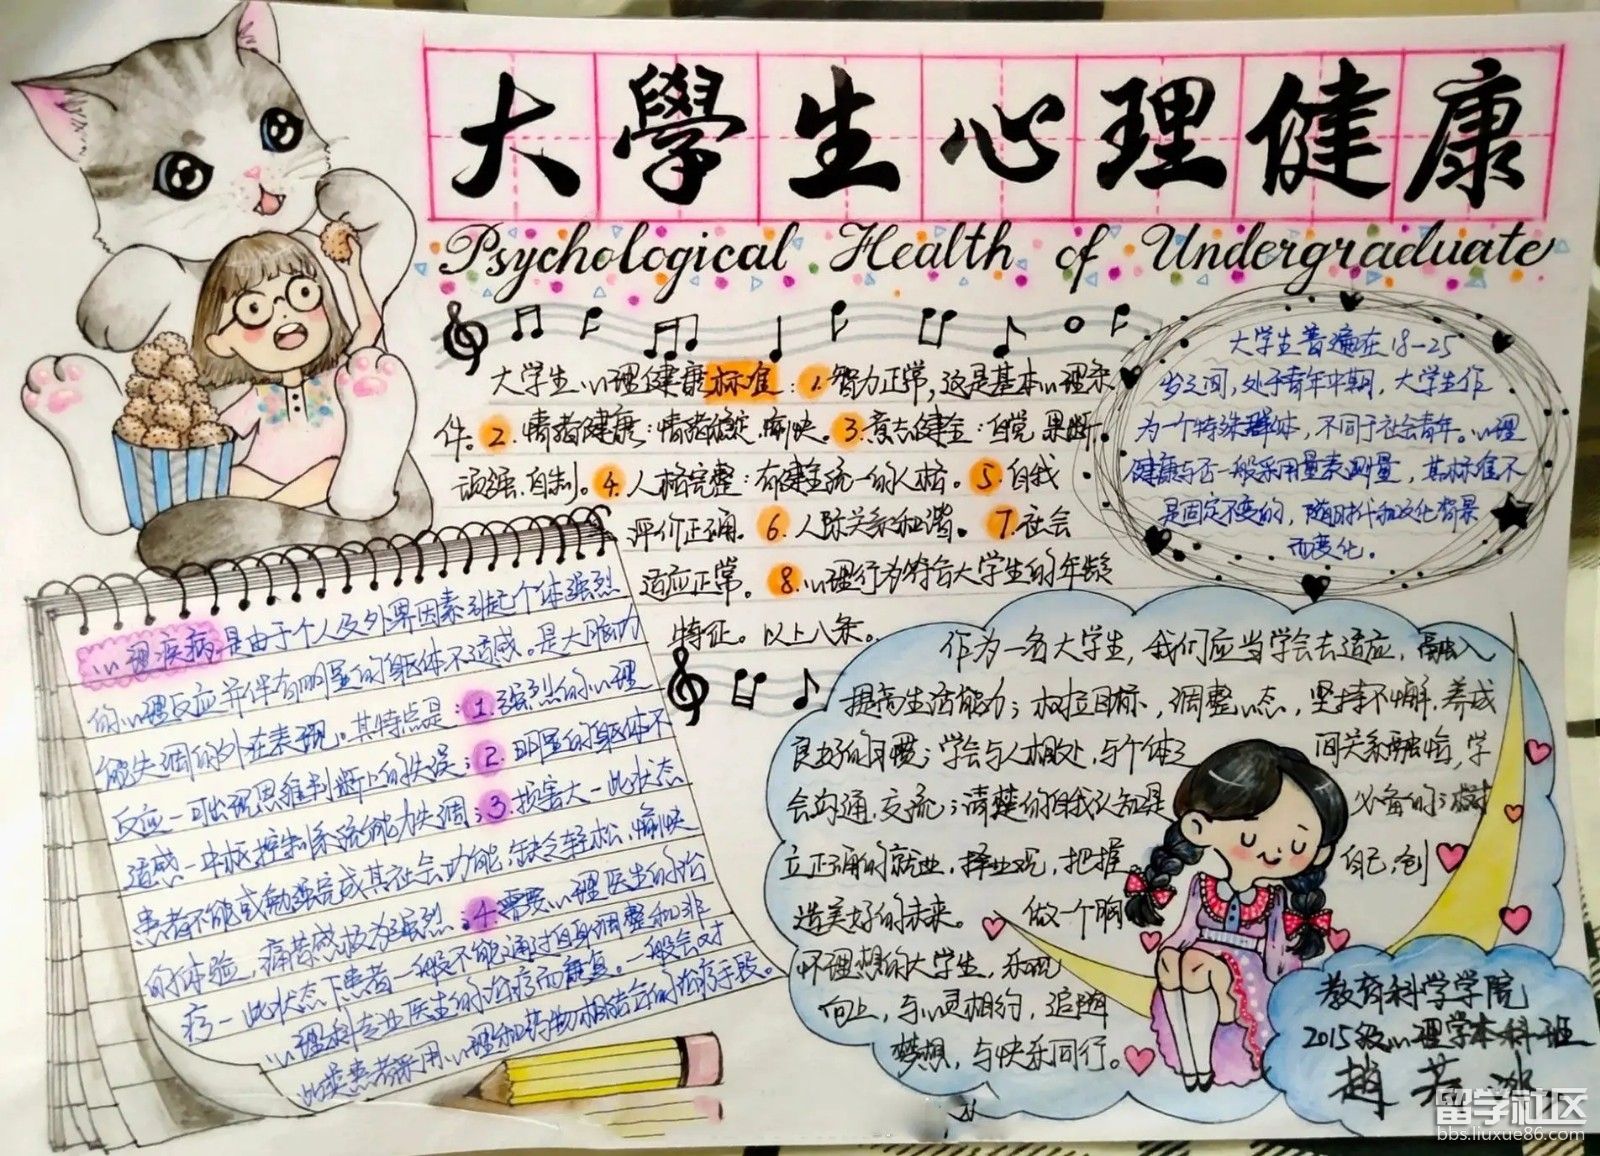 大學生心理健康
Psychological Health of Undergraduate
大学生心理健康标准：1.智力正常，这是基本心理条
件。2.情绪健康：情绪稳定、愉快。3.意志健全：自觉、果断、
顽强、自制。4.人格完整：有健全统一的人格。5.自我
评价正确。6.人际关系和谐。7.社会
适应正常。8.心理行为符合大学生的年龄
特征。以上八条。
大学生普遍在18-25
岁之间，处于青年中期，大学生作
为一个特殊群体，不同于社会青年。心理
健康与否一般采用量表测量，其标准不
是固定不变的，随时代和文化背景
而变化。
心理疾病是由于个人及外界因素引起个体强烈
的心理反应并伴有明显的躯体不适感。是大脑功
能失调的外在表现。其特点是：1.强烈的心理
反应—可出现思维判断上的失误；2.明显的躯体不
适感—中枢控制系统能力失调；3.损害大—此状态
患者不能或勉强完成其社会功能，缺乏轻松、愉快
的体验，痛苦感极为强烈；4.需要心理医生的治
疗—此状态下患者一般不能通过自身调整和非
心理科专业医生的治疗而康复。一般会对
此类患者采用心理和药物相结合的治疗手段。
作为一名大学生，我们应当学会去适应，融入
提高生活能力；树立目标，调整心态，坚持不懈，养成
良好的习惯；学会与人相处，与个体之间关系融恰，学
会沟通、交流；清楚的自我认知是必备的；树
立正确的就业、择业观，把握自己，创
造美好的未来。做一个胸
怀理想的大学生，乐观
向上，与心灵相约，追随
梦想，与快乐同行。
教育科学学院
2015级心理学本科班
留学社区
bbs.liuxue86.com